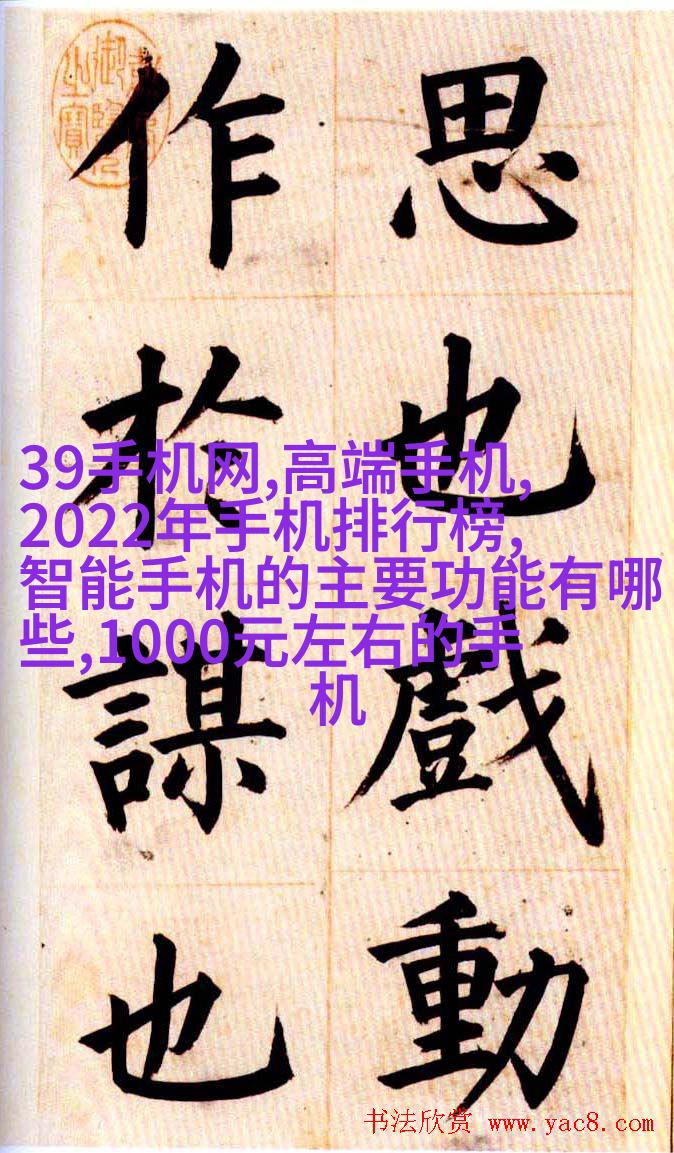 思也戲動
作於謀也
39手机网,高端手机,
2022年手机排行榜,
智能手机的主要功能有哪
些,1000元左右的手
机
书法欣赏 www.yac8.com